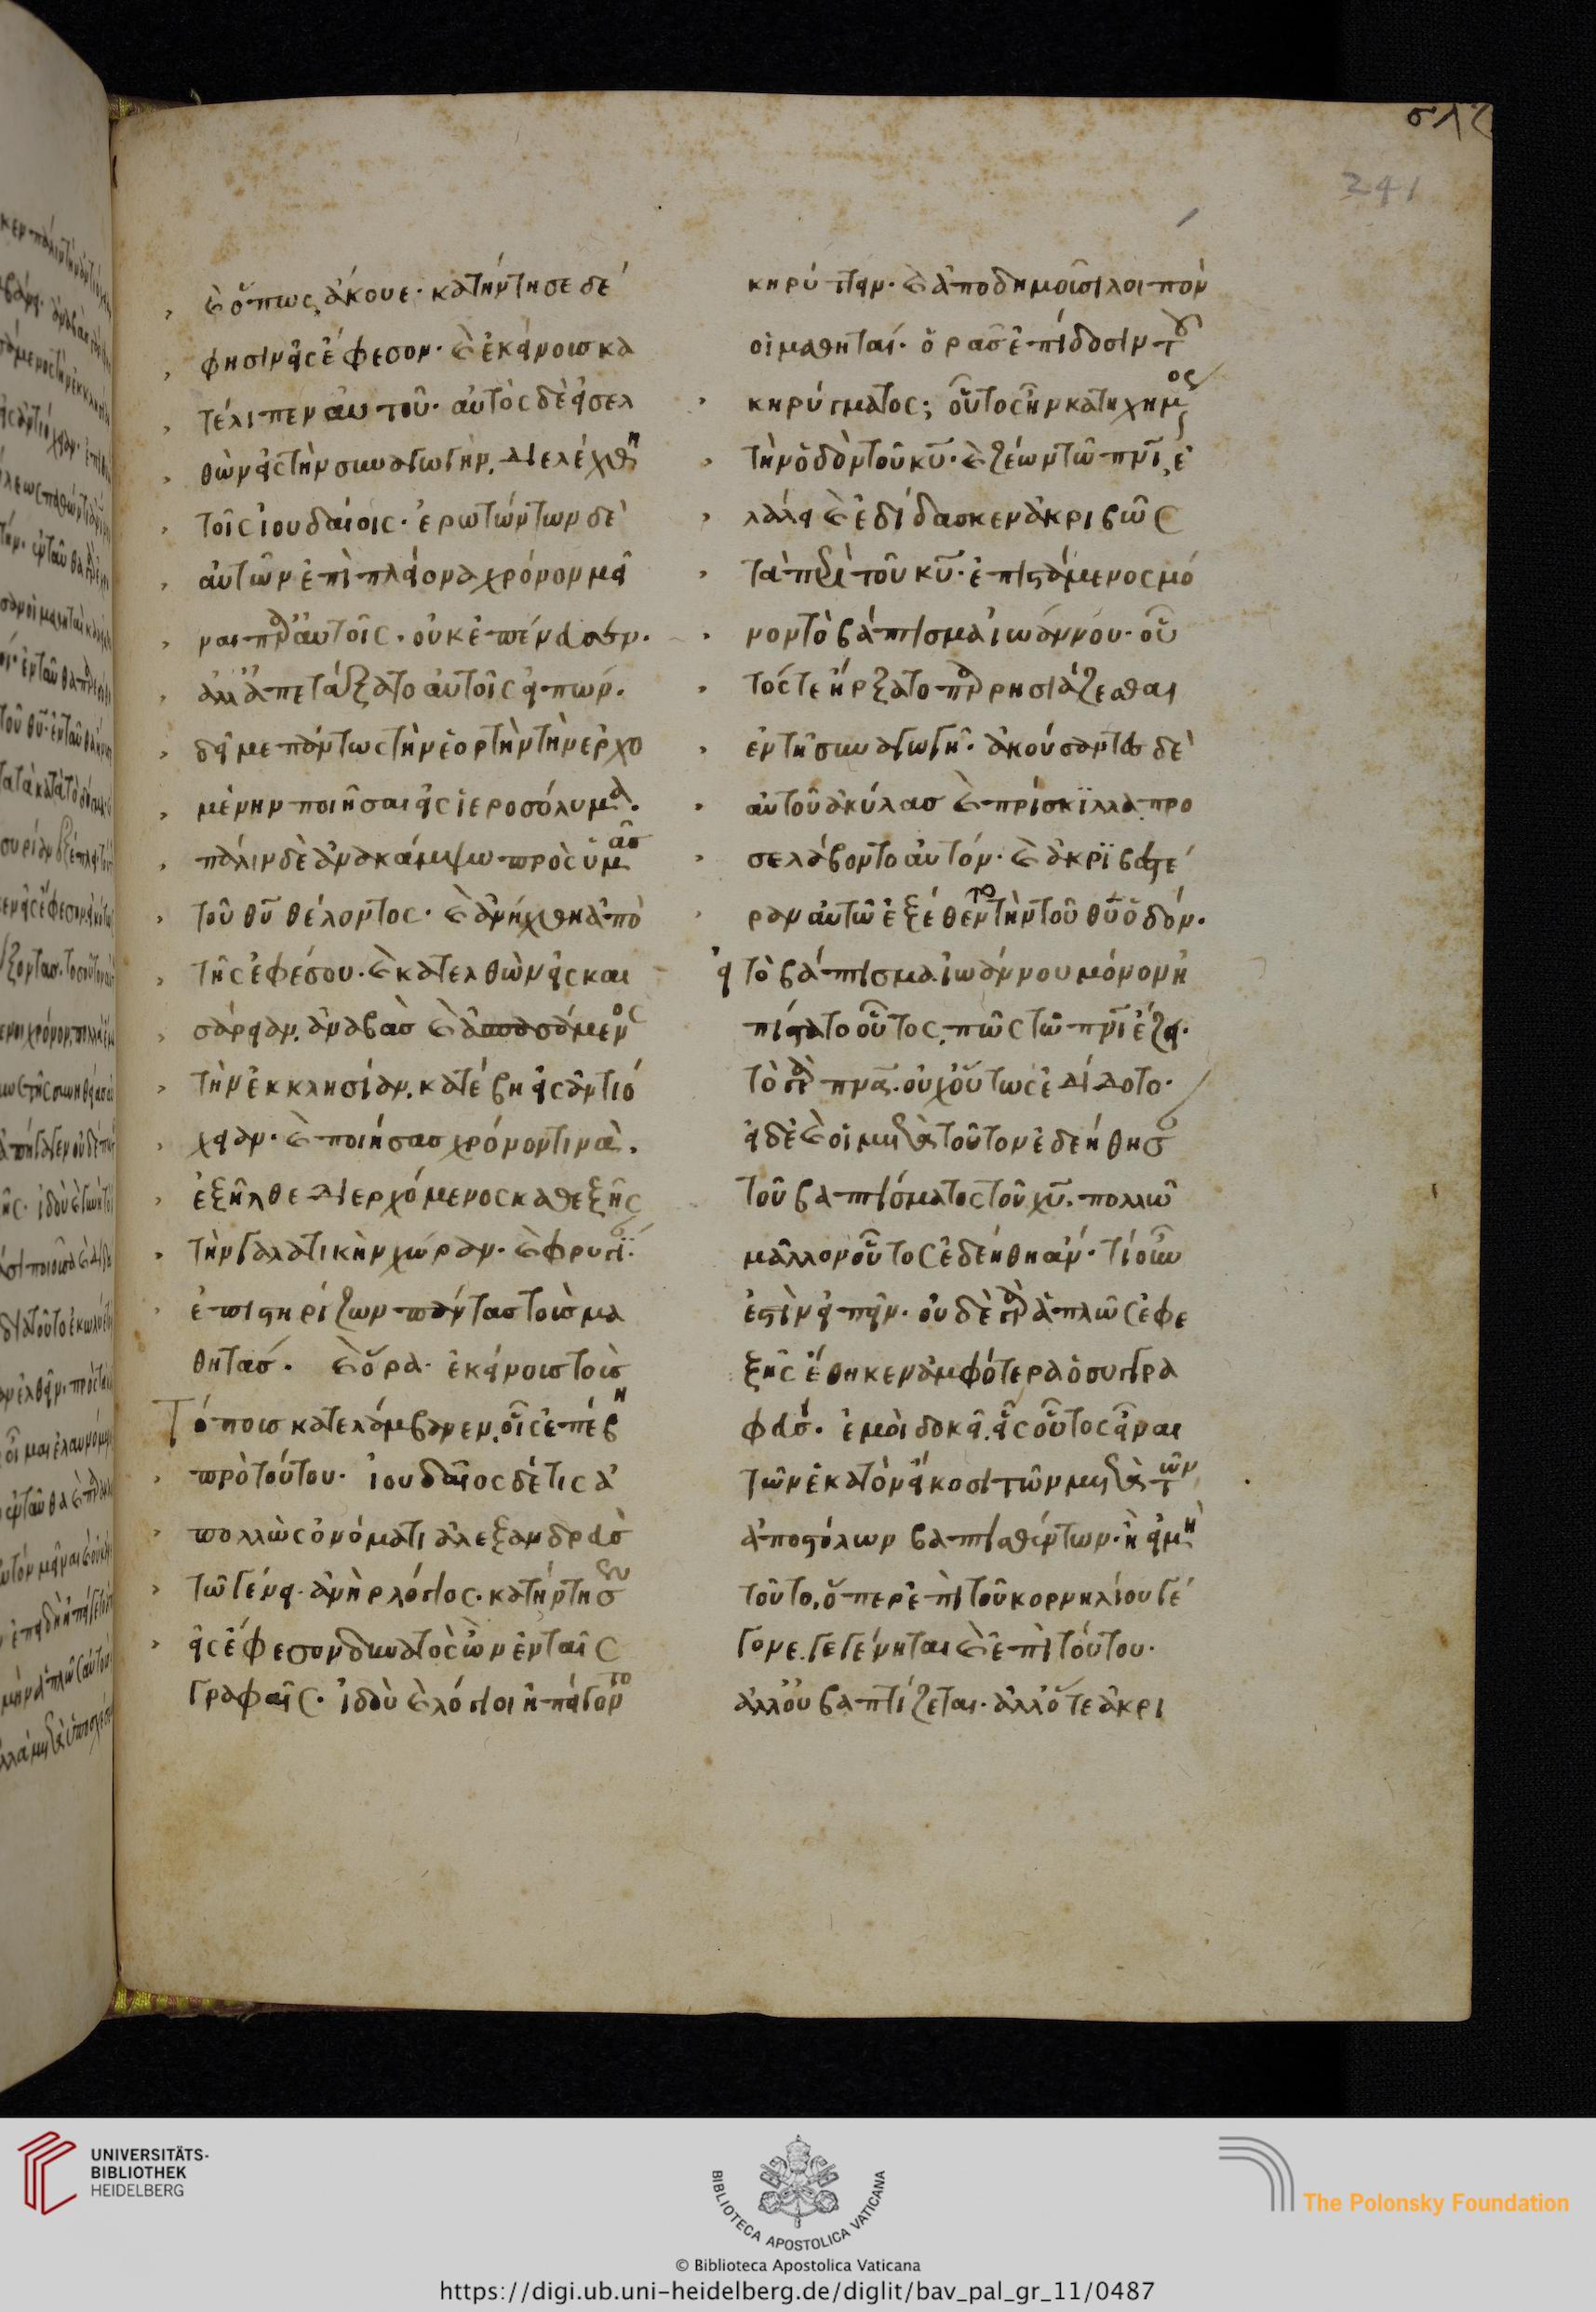 σλζ
241
καὶ ὅπως, ἄκουε· κατήντησε δέ
φησιν εἰς ἔφεσον· καὶ ἐκείνους κα
τέλιπεν αὐτοῦ· αὐτὸς δὲ εἰσελ
θὼν εἰς τὴν συναγωγὴν, διελέχθη
τοῖς ἰουδαίοις· ἐρωτώντων δὲ
αὐτῶν ἐπὶ πλείονα χρόνον μεῖ
ναι παρ' αὐτοῖς· οὐκ ἐπένευσεν·
ἀλλ' ἀπετάξατο αὐτοῖς εἰπών·
δεῖ με πάντως τὴν ἑορτὴν τὴν ἐρχο
μένην ποιῆσαι εἰς ἱεροσόλυμα·
πάλιν δὲ ἀνακάμψω πρὸς ὑμᾶς
τοῦ θυ θέλοντος· καὶ ἀνήχθη ἀπὸ
τῆς ἐφέσου· καὶ κατελθὼν εἰς και
σάρειαν, ἀναβὰς καὶ ἀσπασάμενος
τὴν ἐκκλησίαν, κατέβη εἰς ἀντιό
χειαν· καὶ ποιήσας χρόνον τινὰ,
ἐξῆλθε διερχόμενος καθεξῆς
τὴν γαλατικὴν χώραν· καὶ φρυγίαν·
ἐπιστηρίζων πάντας τοὺς μα
θητάς. καὶ ὅρα· ἐκείνους τοὺς
Τόπους κατελάμβανεν, οἷς ἐπέβη
πρὸ τούτου· ἰουδαῖος δέ τις ἀ
πολλὼς ὀνόματι ἀλεξανδρεὺς
τῷ γένει· ἀνὴρ λόγιος· κατήντησεν
εἰς ἔφεσον δυνατὸς ὢν ἐν ταῖς
Γραφαῖς· ἰδοὺ καὶ λόγιοι ἠπείγοντο
κηρύττειν· καὶ ἀποδημοῦσι λοιπὸν
οἱ μαθηταί· ὁρᾶς ἐπίδοσιν τοῦ
κηρύγματος; οὗτος ἦν κατηχημένος
τὴν ὁδὸν τοῦ κυ· καὶ ζέων τῷ πνι, ἐ
λάλει καὶ ἐδίδασκεν ἀκριβῶς
τὰ περὶ τοῦ κυ· ἐπιστάμενος μό
νον τὸ βάπτισμα ἰωάννου· οὗ
τός τε ἤρξατο παρρησιάζεσθαι
ἐν τῇ συναγωγῇ· ἀκούσαντες δὲ
αὐτοῦ ἀκύλας καὶ πρίσκιλλα, προ
σελάβοντο αὐτόν· καὶ ἀκριβέστε
ραν αὐτῷ ἐξέθεντο τὴν τοῦ θυ ὁδόν·
εἰ τὸ βάπτισμα ἰωάννου μόνον ἠ
πίστατο οὗτος, πῶς τῷ πνι ἔζει·
τὸ γὰρ πνα, οὐχ οὕτως ἐδίδοτο·
εἰ δὲ καὶ οἱ μετὰ τοῦτον ἐδεήθησαν
τοῦ βαπτίσματος τοῦ χυ, πολλῷ
μᾶλλον οὗτος ἐδεήθη ἄν· τί οὖν
ἐστὶν εἰπεῖν· οὐδὲ γὰρ ἁπλῶς ἐφε
ξῆς ἔθηκεν ἀμφότερα ὁ συγγρα
φεύς· ἐμοὶ δοκεῖ, εἷς οὗτος εἶναι
τῶν ἑκατὸν εἴκοσι τῶν μετὰ τῶν
ἀποστόλων βαπτισθέντων· ἢ εἰ μὴ
τοῦτο, ὅπερ ἐπὶ τοῦ κορνηλίου γέ
Γονε, γεγένηται καὶ ἐπὶ τούτου·
ἀλλ' οὐ βαπτίζεται· ἀλλ' ὅτε ἀκρι
UNIVERSITÄTS-
BIBLIOTHEK
HEIDELBERG
BIBLIOTECA APOSTOLICA VATICANA
The Polonsky Foundation
© Biblioteca Apostolica Vaticana
https://digi.ub.uni-heidelberg.de/diglit/bav_pal_gr_11/0487